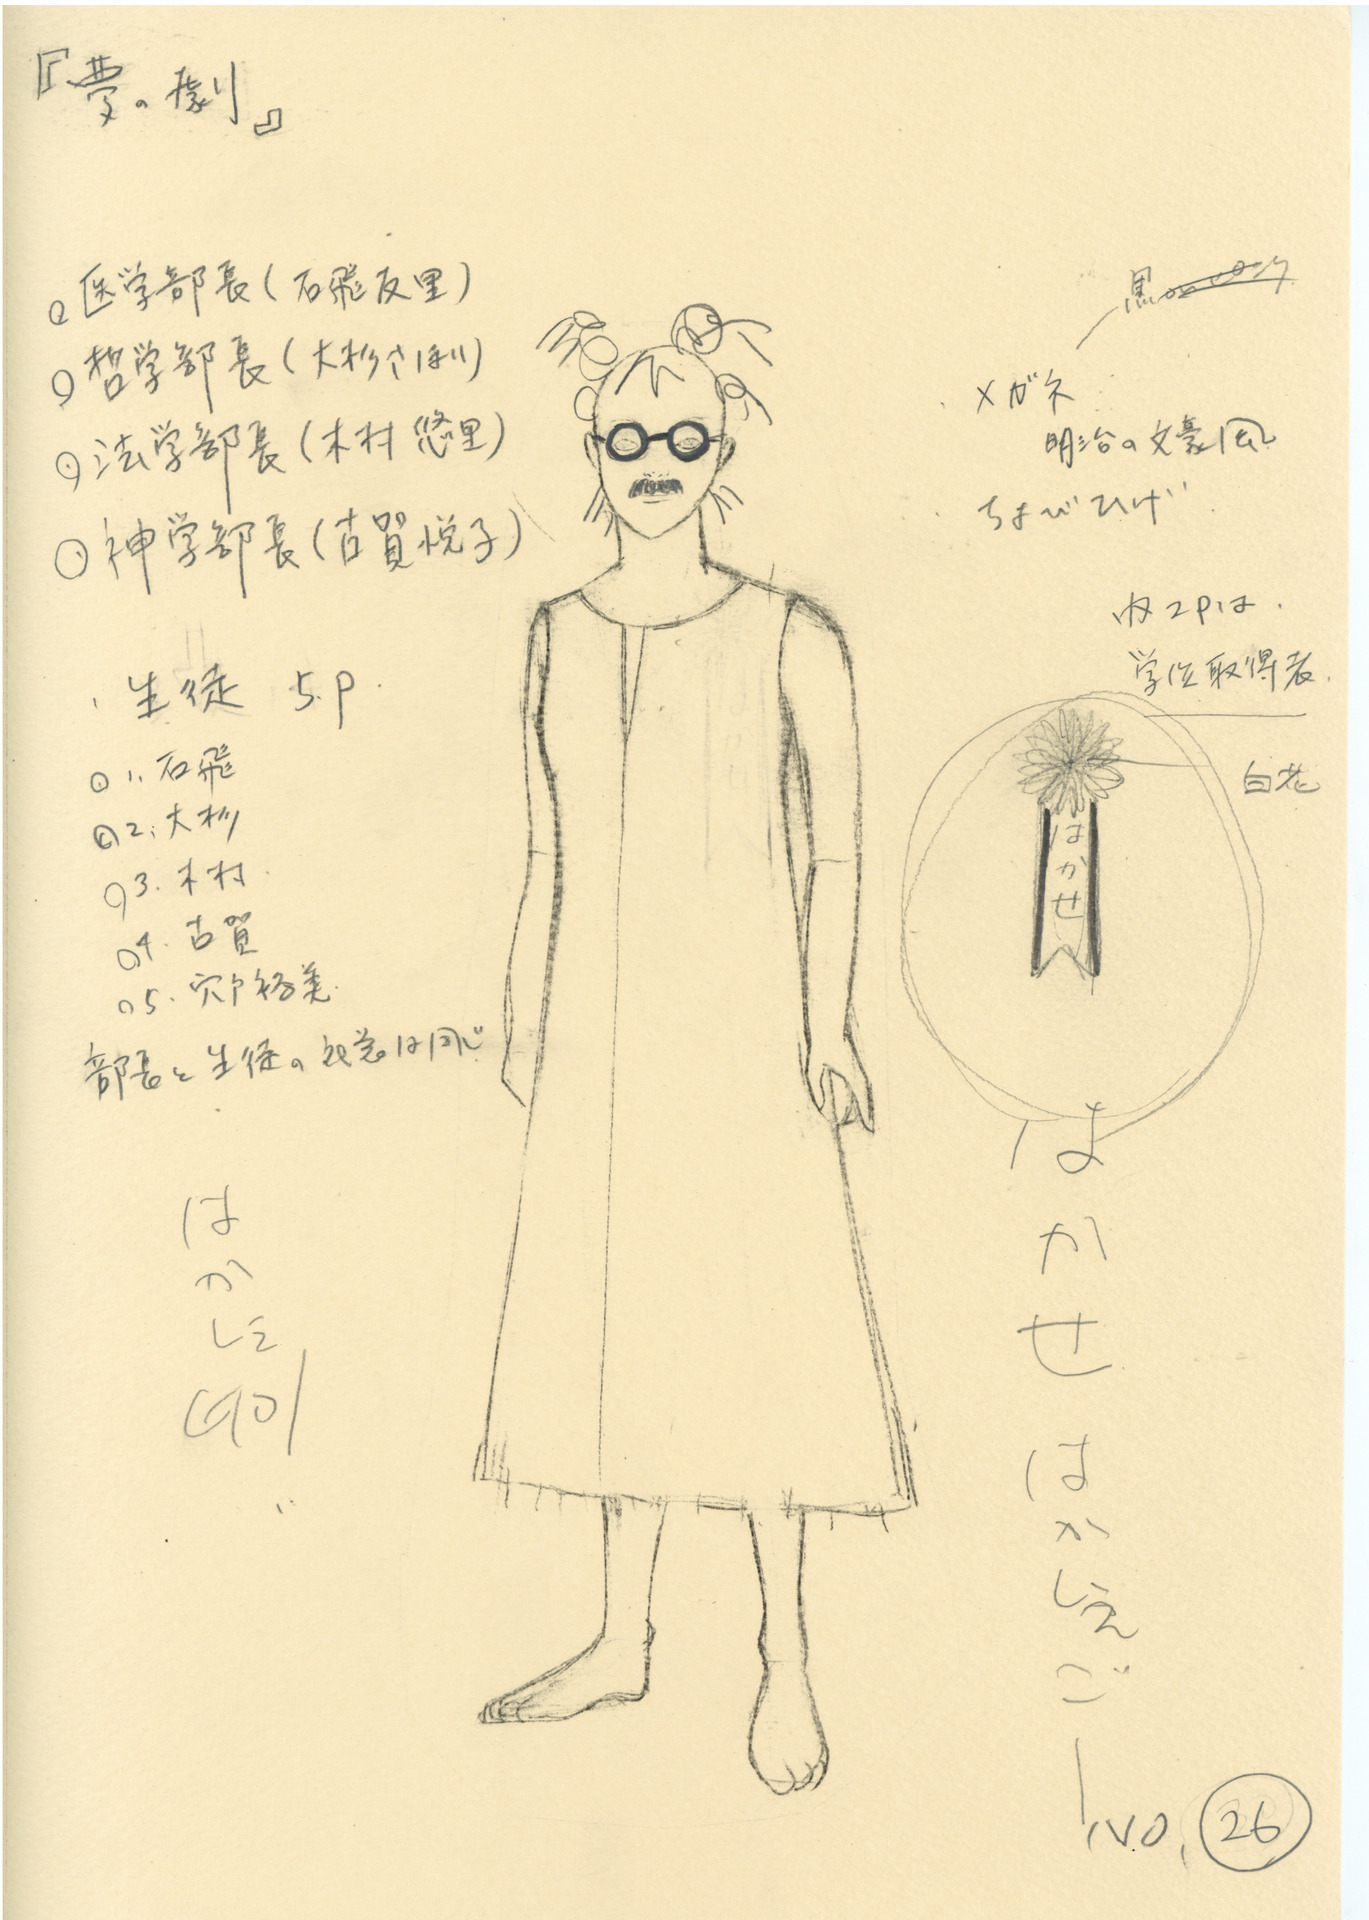 『夢の劇』
医学部長(石飛友里)
哲学部長(大杉さほり)
法学部長(木村悠里)
神学部長(古賀悦子)
生徒 5.P
1. 石飛
2. 大杉
3. 木村
4. 古賀
5. 宍戸裕美
部長と生徒の は同じ
はかし
黒
メガネ
明治の文豪風
ちょびひげ
内2Pは
学位取得者
白花
はかせ
はかせ
はかしぇごー
NO, 26